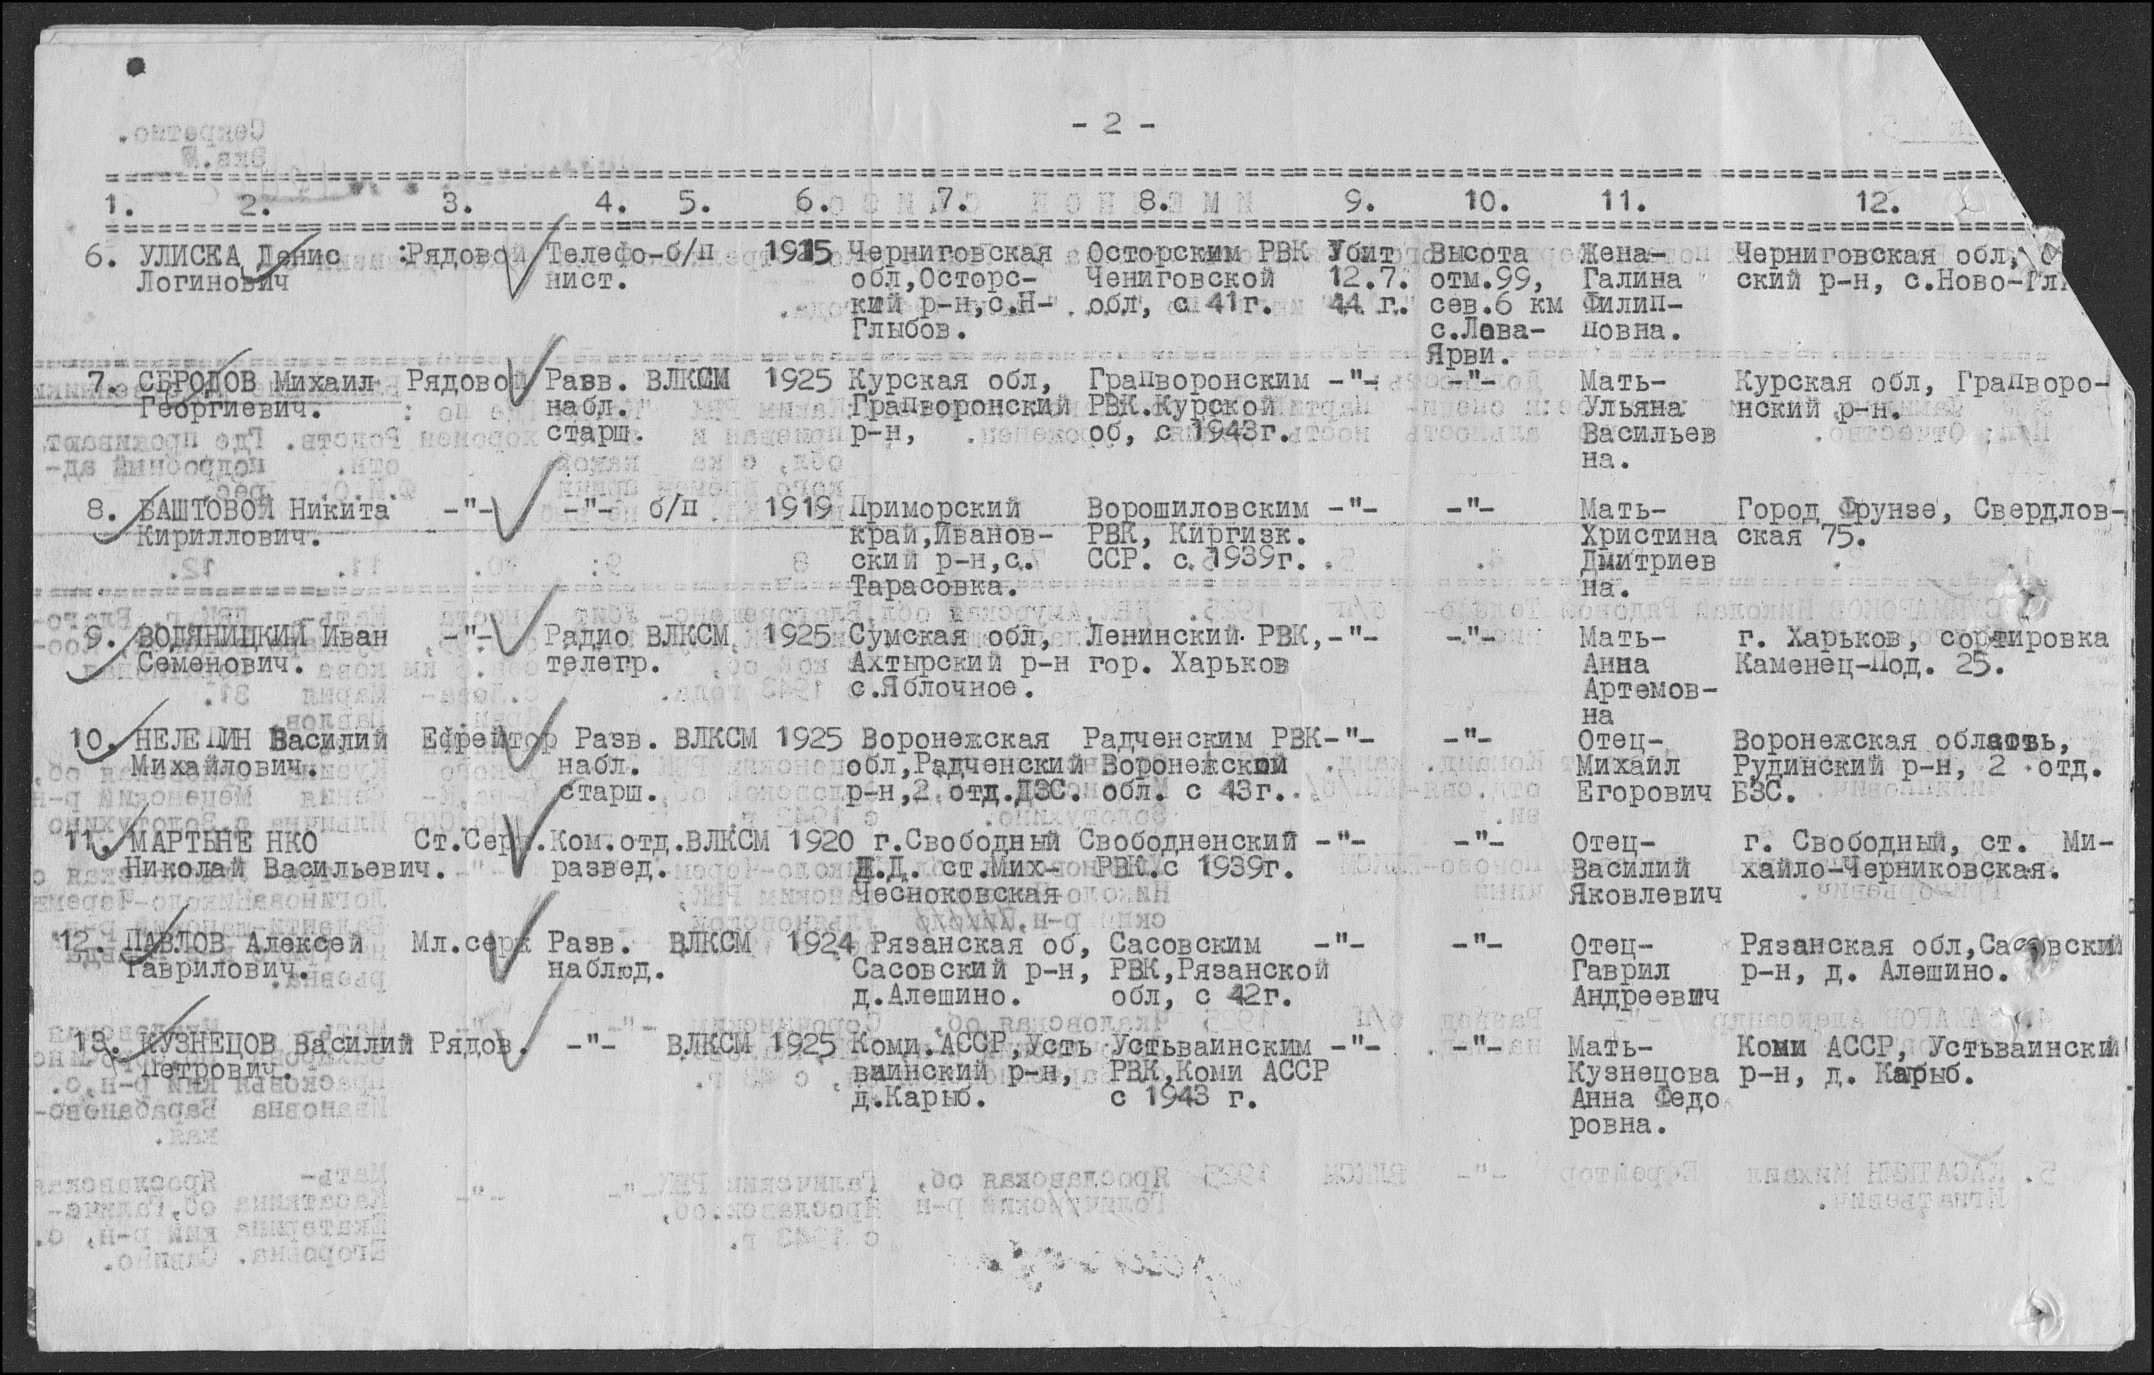 - 2 -
1. 2. 3. 4. 5. 6. 7. 8. 9. 10. 11. 12.
6. УЛИСКА Денис :Рядовой Телефо-б/п 1915 Черниговская Осторским РВК Убит Высота Жена- Черниговская обл,
Логинович нист. обл,Осторс- Чениговской 12.7. отм.99, Галина ский р-н, с.Ново-Гл
кий р-н,с.Н- обл, с 41г. 44 г. сев.6 км Филип-
Глыбов. с.Лава- повна.
Ярви.
7. СБРОДОВ Михаил Рядовой Разв. ВЛКСМ 1925 Курская обл, Грапворонским -"- -"- Мать- Курская обл, Грапворо-
Георгиевич. набл. Грапворонский РВК.Курской Ульяна нский р-н.
старш. р-н, об, с 1943г. Васильев
на.
8. БАШТОВОЙ Никита -"- -"- б/п 1919 Приморский Ворошиловским -"- -"- Мать- Город Фрунзе, Свердлов-
Кириллович. край,Иванов- РВК, Киргизк. Христина ская 75.
ский р-н,с. ССР. с.1939г. Дмитриев
Тарасовка. на.
9. ВОДЯНИЦКИЙ Иван -"- Радио ВЛКСМ 1925 Сумская обл, Ленинский РВК,-"- -"- Мать- г. Харьков, сортировка
Семенович. телегр. Ахтырский р-н гор. Харьков Анна Каменец-Под. 25.
с.Яблочное. Артемов-
на
10. НЕЛЕПИН Василий Ефрейтор Разв. ВЛКСМ 1925 Воронежская Радченским РВК-"- -"- Отец- Воронежская область,
Михайлович. набл. обл,Радченский Воронежской Михайл Рудинский р-н, 2 отд.
старш. р-н,2 отд.ДЗС. обл. с 43г. Егорович БЗС.
11. МАРТЫНЕНКО Ст.Серж.Ком.отд.ВЛКСМ 1920 г.Свободный Свободненский -"- -"- Отец- г. Свободный, ст. Ми-
Николай Васильевич. развед. Ж.Д. ст.Мих- РВК.с 1939г. Василий хайло-Черниковская.
Чесноковская Яковлевич
12. ПАВЛОВ Алексей Мл.серж Разв. ВЛКСМ 1924 Рязанская об, Сасовским -"- -"- Отец- Рязанская обл,Сасовский
Гаврилович. наблюд. Сасовский р-н, РВК,Рязанской Гаврил р-н, д. Алешино.
д.Алешино. обл, с 42г. Андреевич
13. КУЗНЕЦОВ Василий Рядов. -"- ВЛКСМ 1925 Коми.АССР,Усть Устьваинским -"- -"- Мать- Коми АССР, Устьваинский
Петрович. ваинский р-н, РВК,Коми АССР Кузнецова р-н, д. Карыб.
д.Карыб. с 1943 г. Анна Федо
ровна.